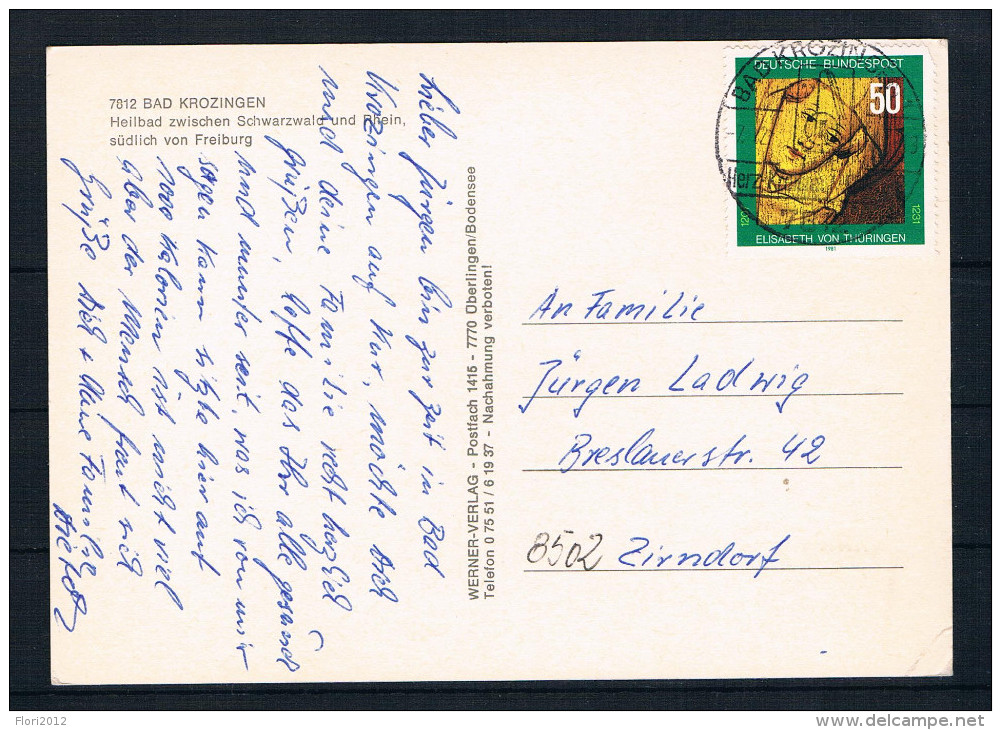 7812 BAD KROZINGEN
Heilbad zwischen Schwarzwald und Rhein,
südlich von Freiburg
Lieber Jürgen bin zur zeit in Bad
Krozingen auf Kur, möchte Dich
und deine Familie recht herzlich
grüßen, hoffe das Ihr alle gesund
und munter seit, was ich von mir
sagen kann sitze hier auf
1000 Kalorien ist nicht viel
aber der Mensch freut sich
Grüße Dich + Deine Familie
Dieter
WERNER-VERLAG - Postfach 1415 - 7770 Überlingen/Bodensee
Telefon 0 75 51 / 6 19 37 - Nachahmung verboten!
BAD KROZINGEN
Herz-Kr
DEUTSCHE BUNDESPOST
50
1207
1231
ELISABETH VON THÜRINGEN
1981
An Familie
Jürgen Ladwig
Breslauerstr. 42
8502 Zirndorf
Flori2012
delcampe.net